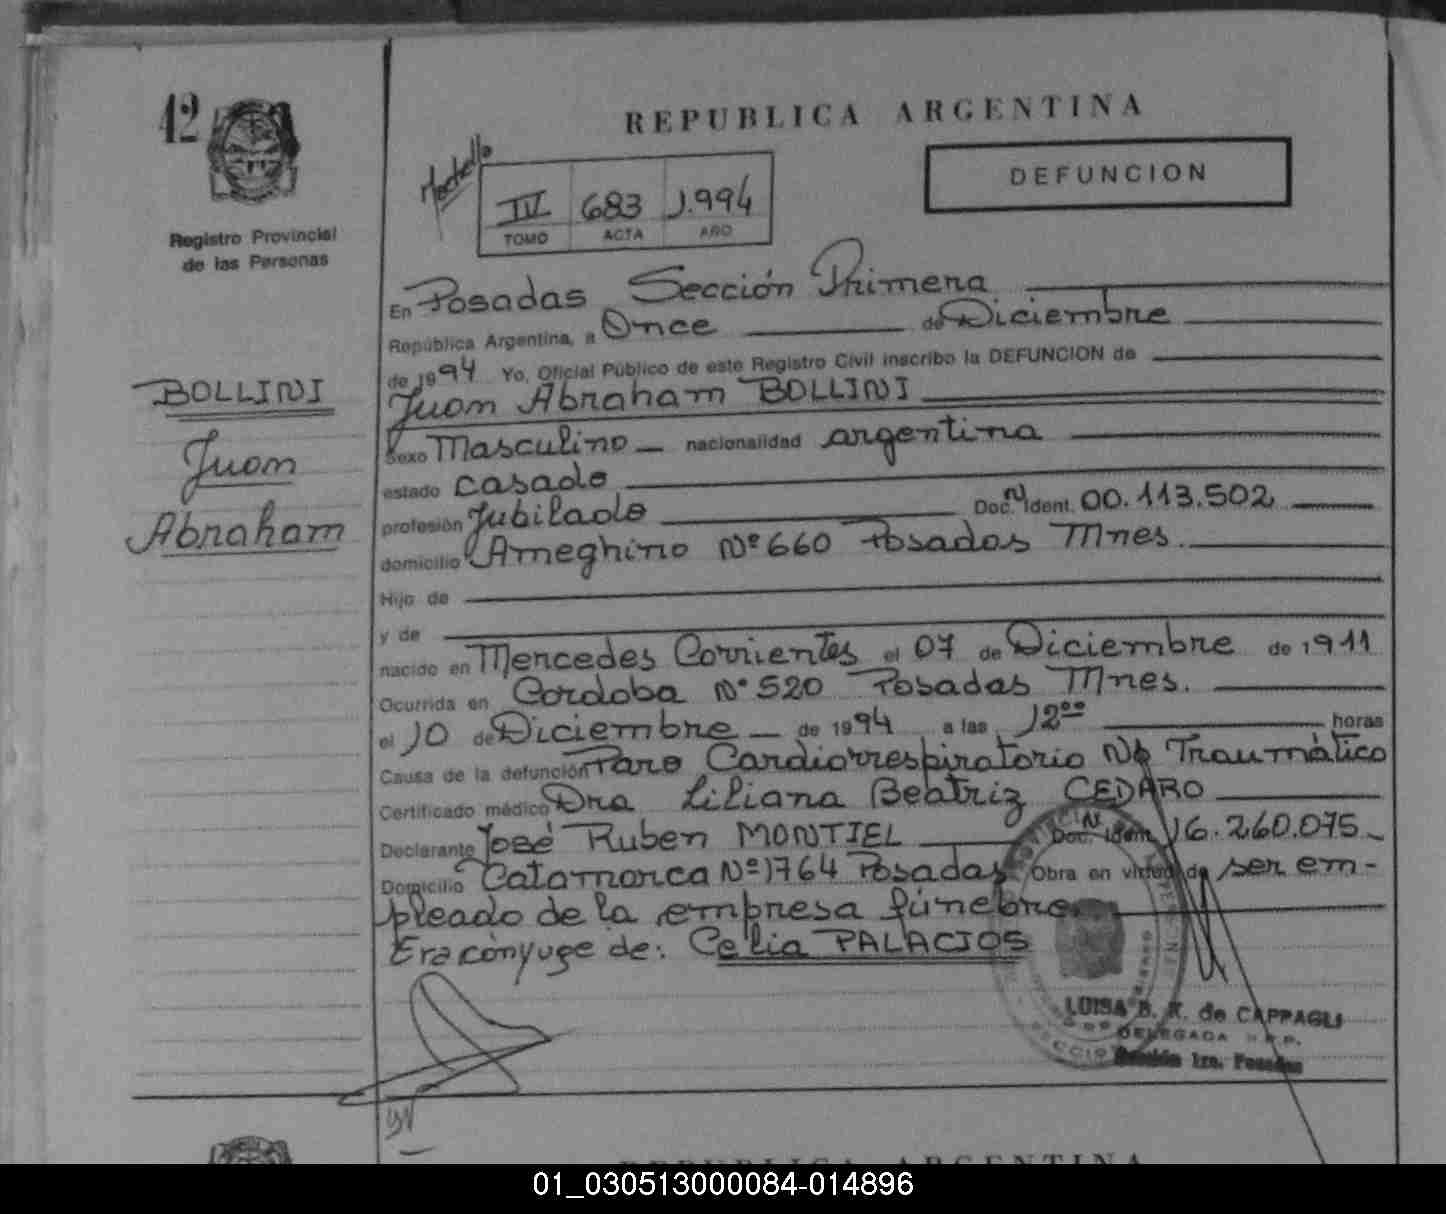 42
REPUBLICA ARGENTINA
DEFUNCION
IV 683 1.994
TOMO ACTA AÑO
Registro Provincial
de las Personas
BOLLINI
Juan
Abraham
En Posadas Sección Primera
República Argentina, a Once de Diciembre
de 1994 Yo, Oficial Público de este Registro Civil inscribo la DEFUNCION de
Juan Abraham BOLLINI
Sexo Masculino nacionalidad argentina
estado casado
profesión Jubilado Doc. N Ident. 00.113.502
domicilio Ameghino Nº 660 Posadas Mnes.
Hijo de
y de
nacido en Mercedes Corrientes el 07 de Diciembre de 1911
Ocurrida en Cordoba Nº 520 Posadas Mnes.
el 10 de Diciembre de 1994 a las 12⁰⁰ horas
Causa de la defunción Paro Cardiorrespiratorio No Traumático
Certificado médico Dra Liliana Beatriz CEDARO
Declarante José Ruben MONTIEL Doc. N. Ident. 16.260.075
Domicilio Catamarca Nº 1764 Posadas Obra en virtud de ser em-
pleado de la empresa fúnebre.
Era cónyuge de: Celia PALACIOS
LUISA B. K. de CAPPAGLI
DELEGADA R.P.P.
Sección 1ra. Posadas
REPUBLICA ARGENTINA
01_030513000084-014896